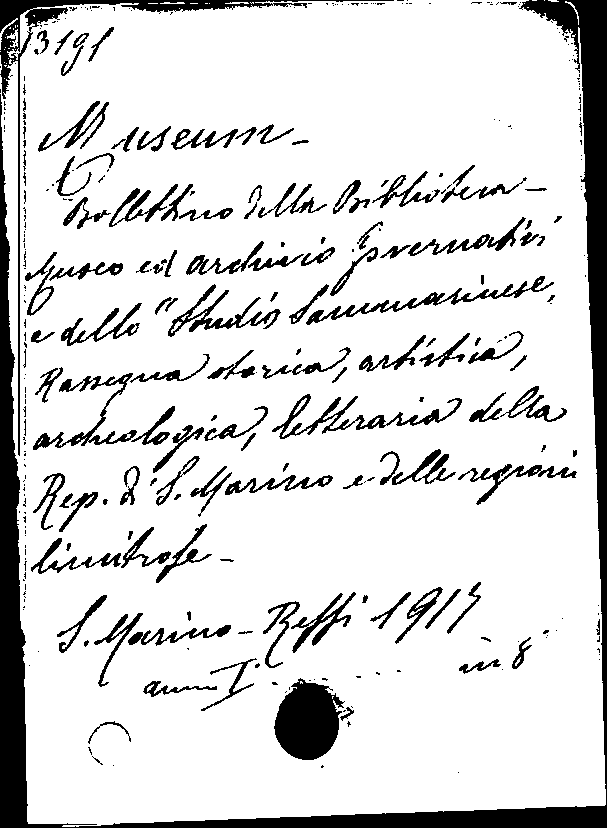 13191
Museum -
Bollettino della Biblioteca -
Museo ed archivio Governativi
e dello "Studio Sammarinese,
Rassegna storica, artistica,
archeologica, letteraria della
Rep. di S. Marino e delle regioni
limitrofe -
S. Marino - Reffi 1917
anno I° . . . . . . . in 8°